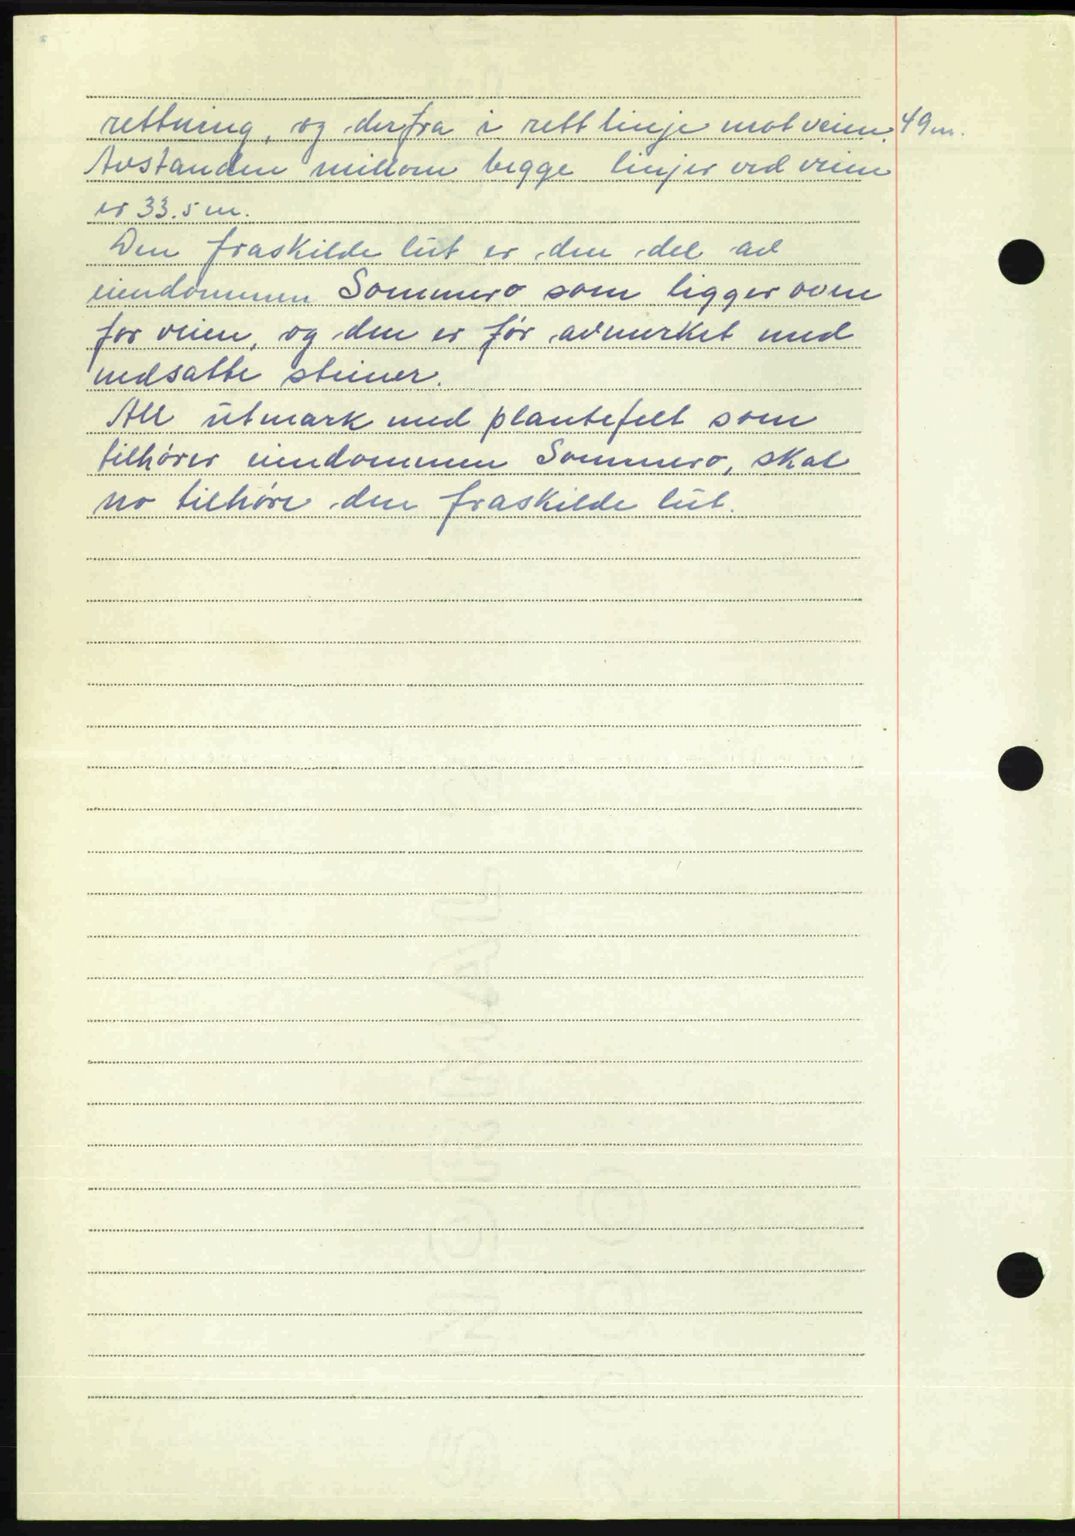 rettning, og derfra i rett linje mot veien, 49 m.
Avstanden millom begge linjer ved veien
er 33.5 m.
Den fraskilde lut er den del av
eiendommen Sommero som ligger oven
for veien, og den er før avmerket med
nedsatte steiner.
All utmark med plantefelt som
tilhører eiendommen Sommero, skal
no tilhøre den fraskilde lut.